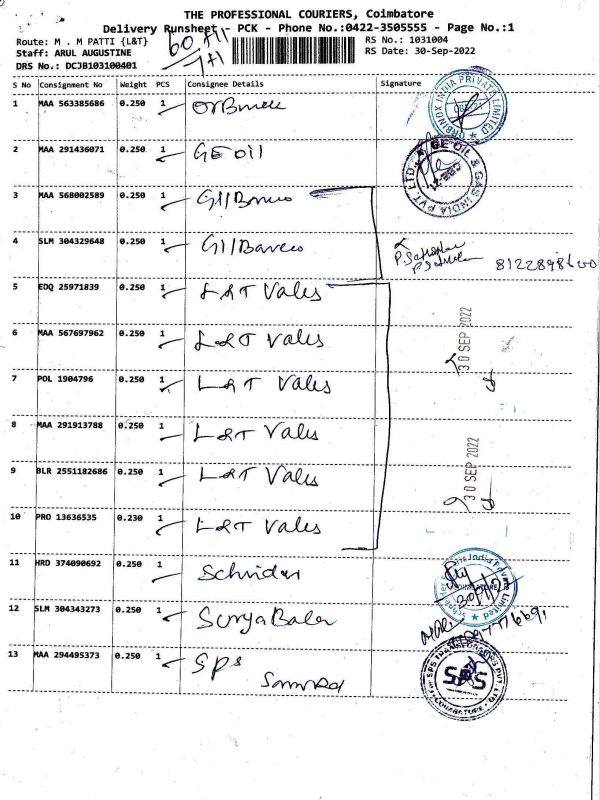 THE PROFESSIONAL COURIERS, Coimbatore
Delivery Runsheet - PCK - Phone No.:0422-3505555 - Page No.:1
Route: M . M PATTI {L&T}
RS No.: 1031004
Staff: ARUL AUGUSTINE
RS Date: 30-Sep-2022
DRS No.: DCJB103100401
S No Consignment No Weight PCS Consignee Details Signature
1 MAA 563385686 0.250 1
2 MAA 291436071 0.250 1 GE Oil
3 MAA 568002589 0.250 1
4 SLM 304329648 0.250 1
8122898600
5 EDQ 25971839 0.250 1 L&T Vales
6 MAA 567697962 0.250 1 L&T Vales
30 SEP 2022
7 POL 1904796 0.250 1 L&T Vales
8 MAA 291913788 0.250 1 L&T Vales
9 BLR 2551182686 0.250 1 L&T Vales
30 SEP 2022
10 PRO 13636535 0.230 1 L&T Vales
11 HRD 374090692 0.250 1
12 SLM 304343273 0.250 1 Surya Bala
13 MAA 294495373 0.250 1 SPS
ORBINOX INDIA PRIVATE LIMITED
GE OIL & GAS INDIA PVT. LTD.
CBE-21
For SPS TRANSFORMERS PVT LTD
SPS
COIMBATORE